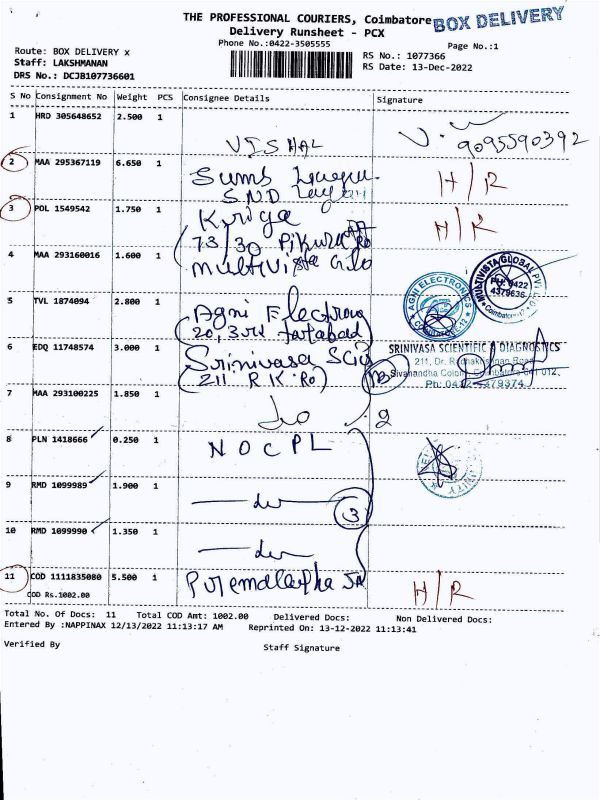 THE PROFESSIONAL COURIERS, Coimbatore
BOX DELIVERY
Delivery Runsheet - PCX
Phone No.:0422-3505555
Page No.:1
Route: BOX DELIVERY x
Staff: LAKSHMANAN
DRS No.: DCJB107736601
RS No.: 1077366
RS Date: 13-Dec-2022
S No Consignment No Weight PCS Consignee Details Signature
1 HRD 305648652 2.500 1
VISHAL
9095590392
2 MAA 295367119 6.650 1
Sums
H/R
SND
3 POL 1549542 1.750 1
Kriya
H/R
73/30
4 MAA 293160016 1.600 1
Multivista Glo
MULTIVISTA GLOBAL PVT
PH: 0422
4379636
Coimbatore
5 TVL 1874094 2.800 1
Agni Electron
AGNI ELECTRONICS
COIMBATORE-12
20, 3rd
6 EDQ 11748574 3.000 1
Srinivasa Sci
(211 R K Ro)
SRINIVASA SCIENTIFIC & DIAGNOSTICS
211, Dr. Radhakrishnan Road
Sivanandha Colony, Coimbatore-641 012.
Ph: 0422-4379374
7 MAA 293100225 1.850 1
8 PLN 1418666 0.250 1
NOCPL
9 RMD 1099989 1.900 1
3
10 RMD 1099990 1.350 1
11 COD 1111835080 5.500 1
H/R
COD Rs.1002.00
Total No. Of Docs: 11 Total COD Amt: 1002.00 Delivered Docs: Non Delivered Docs:
Entered By :NAPPINAX 12/13/2022 11:13:17 AM Reprinted On: 13-12-2022 11:13:41
Verified By Staff Signature